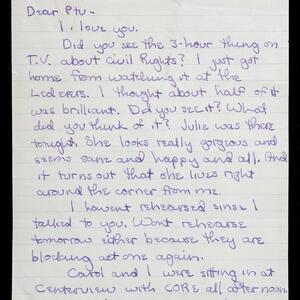 Dear Ptu-
I, love you.
Did you see the 3-hour thing on
T.V. about Civil Rights? I just got
home from watching it at the
Lederers. I thought about half of it
was brilliant. Did you see it? What
did you think of it? Julie was there
tonight. She looks really gorgeous and
seems sane and happy and all. And
it turns out that she lives right
around the corner from me.
I havent rehearsed since I
talked to you. Wont rehearse
tomorrow either because they are
blocking act one again.
Carol and I were sitting in at
Centerview with CORE all afternoon